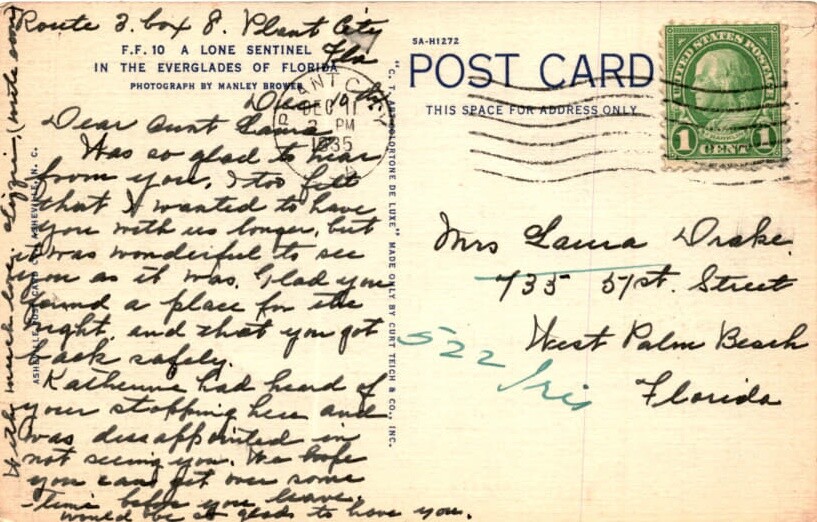 Route 3. box 8. Plant City
Fla
F.F. 10 A LONE SENTINEL
IN THE EVERGLADES OF FLORIDA
PHOTOGRAPH BY MANLEY BROWER
Dec 10
Dear Aunt Laura
Was so glad to hear
from you. I too felt
that I wanted to have
you with us longer, but
it was wonderful to see
you as it was. Glad you
found a place for the
night, and that you got
back safely.
Katherine had heard of
your stopping here and
was dissappointed in
not seeing you. We hope
you can get over some
time before you leave.
would be so glad to have you.
With much love. Lizzie. (write soon
ASHEVILLE POST CARD CO., ASHEVILLE, N. C.
PLANT CITY
DEC 11
2 PM
1935
"C. T. ART-COLORTONE DE LUXE" MADE ONLY BY CURT TEICH & CO., INC.
5A-H1272
POST CARD
THIS SPACE FOR ADDRESS ONLY
UNITED STATES POSTAGE
FRANKLIN
1 CENT 1
Mrs Laura Drake.
735 51st. Street
West Palm Beach
Florida
522 Iris